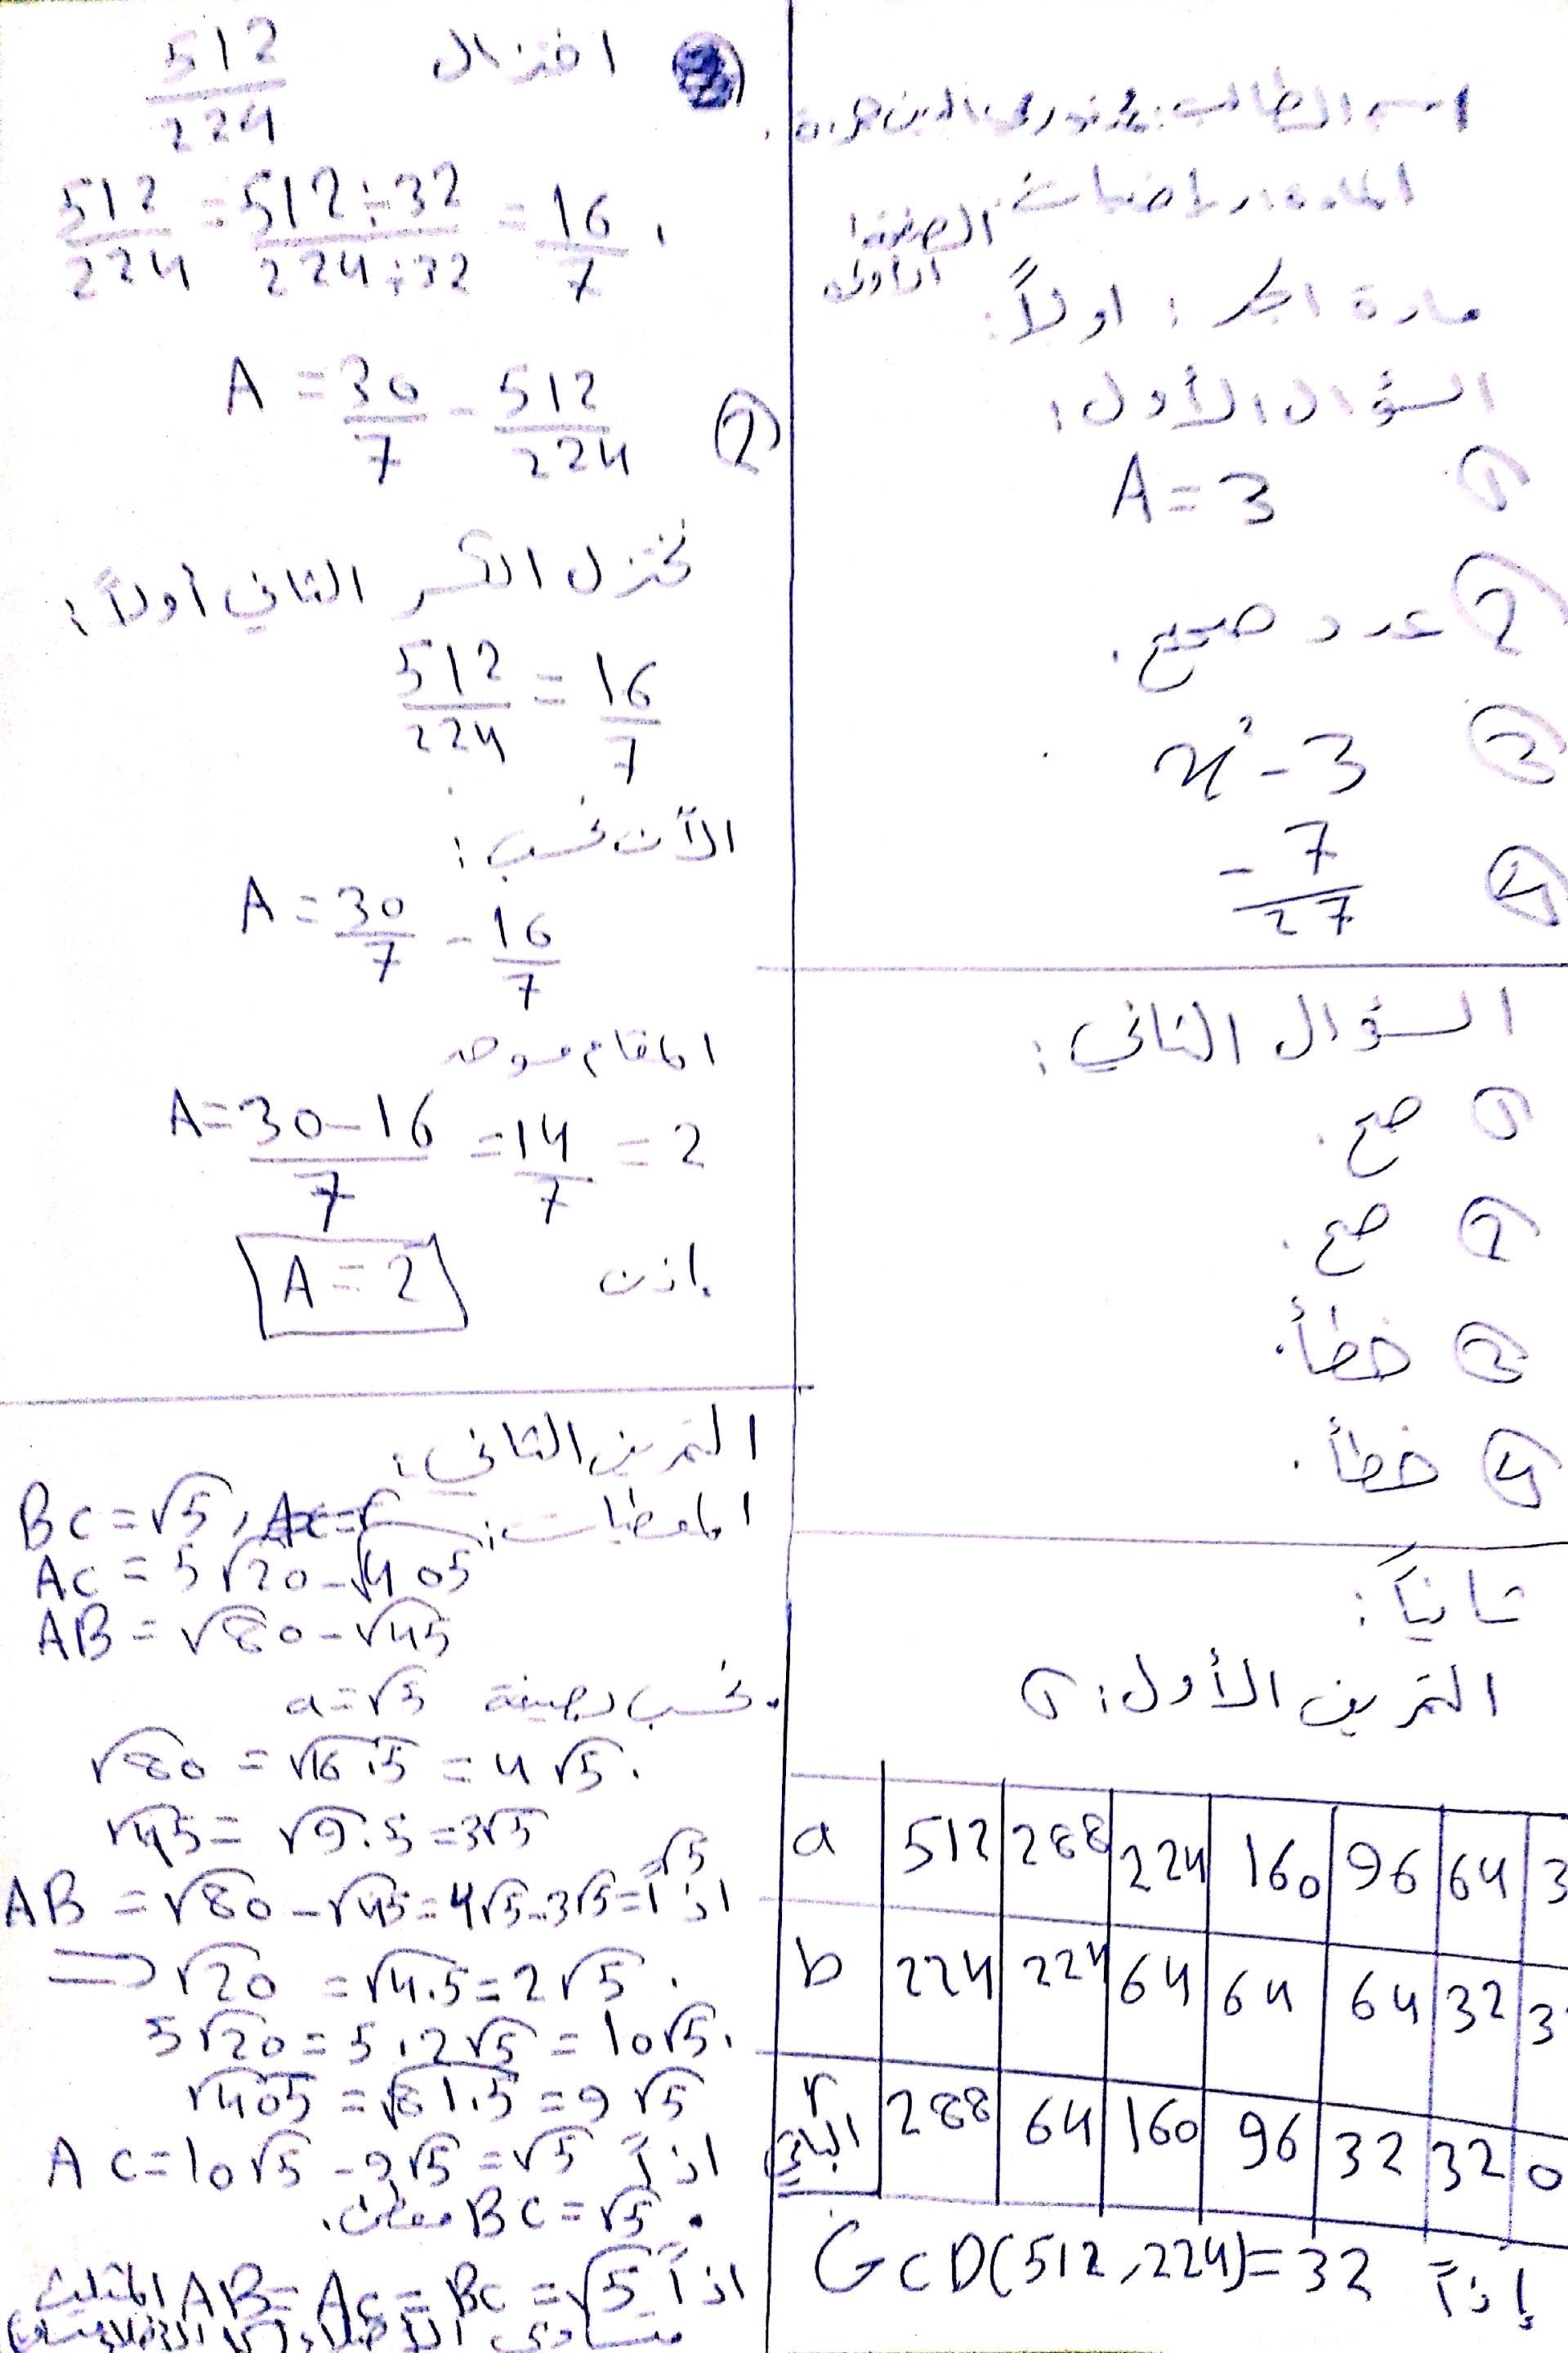 اسم الطالب: نور الدين
المادة: رياضيات الصفحة الأولى
مادة الجبر: اولاً:
السؤال الأول:
① A = 3
② عدد صحيح.
③ x² - 3
④ - 7/27
السؤال الثاني:
① صح.
② صح.
③ خطأ.
④ خطأ.
ثانياً:
التمرين الأول: ①
a 512 288 224 160 96 64 3
b 224 224 64 64 64 32 3
r الباقي 288 64 160 96 32 32 0
إذاً GCD(512,224)=32
اختزال 512/224
512/224 = 512÷32/224÷32 = 16/7.
② A = 30/7 - 512/224
نختزل الكسر الثاني أولاً:
512/224 = 16/7
الآن نحسب:
A = 30/7 - 16/7
المقام موحد
A = 30-16/7 = 14/7 = 2
إذن A = 2
التمرين الثاني:
المعطيات: BC = √5,
AC = 5√20 - √405
AB = √80 - √45
نحسب بصيغة a = √5
√80 = √16.5 = 4√5.
√45 = √9.5 = 3√5
اذاً AB = √80 - √45 = 4√5 - 3√5 = √5
⇒ √20 = √4.5 = 2√5.
5√20 = 5.2√5 = 10√5.
√405 = √81.5 = 9√5
اذاً AC = 10√5 - 9√5 = √5
BC = √5 معطى.
اذاً AB = AC = BC = √5 المثلث
متساوي الأضلاع